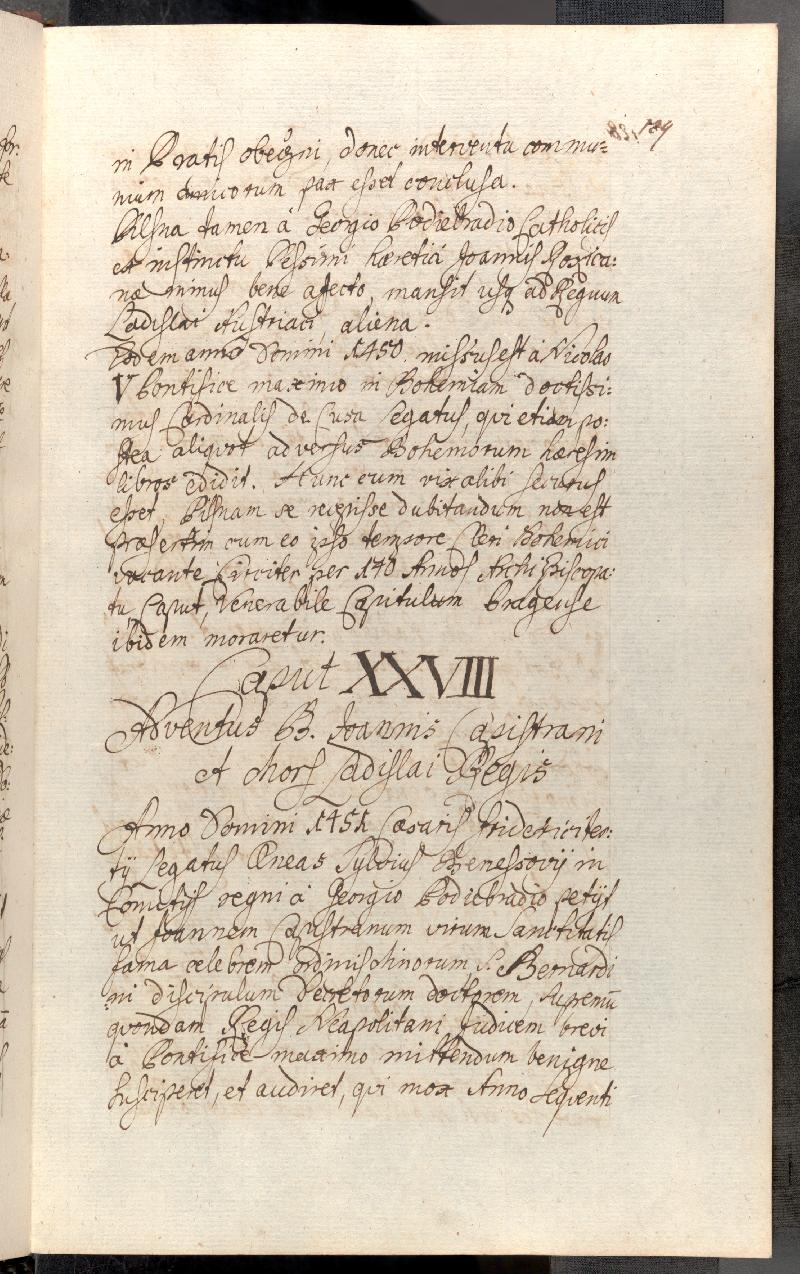 83, 189
in Pratis obequi, donec interventu commu=
nium amicorum pax esset conclusa.
Pilsna tamen à Georgio Podiebradio Catholicis
ex instinctu Pessimi hæretici Joannis Rosica:
næ minus bene afecto, mansit usq ad Regnum
Ladislai Austriaci aliena.
Eodem anno Domini 1450 missus est à Nicolao
V Pontifice maximo in Bohemiam doctissi:
mus Cardinalis de Cusa Legatus, qui etiam po:
stea aliquot adversus Bohemorum hæresim
libros edidit. Hunc cum vix alibi securus
esset, Pilsnam se recepisse dubitandum non est
præsertim cum eo ipso tempore Cleri Bohemici
vacante Circiter per 140 Annos ArchiEpiscopa:
tu Caput, Venerabile Capitulum Pragense
ibidem moraretur.
Caput XXVIII
Adventus B. Joannis Capistrani
et mors Ladislai Regis
Anno Domini 1451 Cæsaris Friderici ter:
tij Legatus Æneas Sylvius Benessovij in
Comitijs regni à Georgio Podiebradio petijt
ut Joannem Capistranum virum Sanctitatis
fama celebrem ordinis Minorum S. Bernardi
ni discipulum Decretorum doctorem, supremū
quondam Regis Neapolitani Judicem brevi
à Pontifice maximo mittendum benigne
susciperet, et audiret, qui mox Anno sequenti